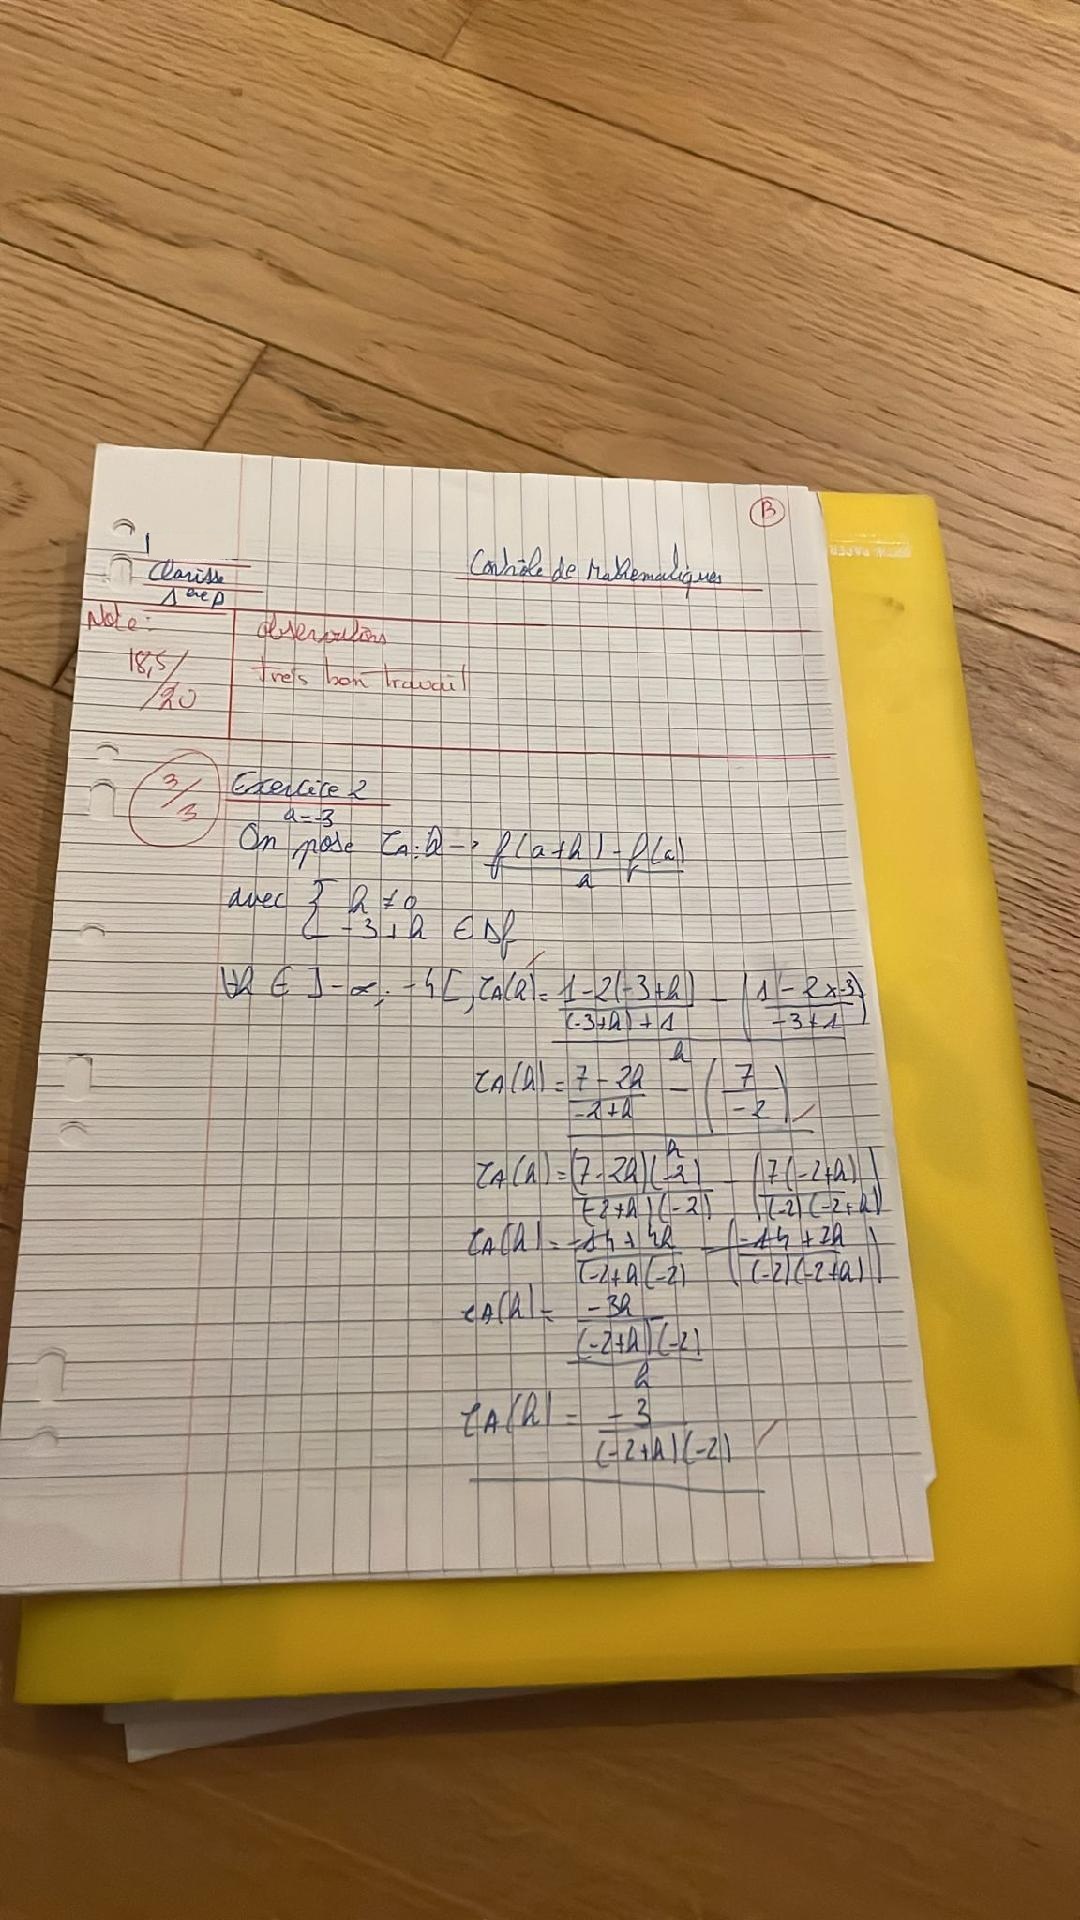 B
Clarisse
Contrôle de Mathématiques
1ère D
Note:
observations
18,5/20
très bon travail
3/3
Exercice 2
a=-3
On pose τA: h → f(a+h) - f(a)
h
avec { h ≠ 0
-3+h ∈ Df
∀h ∈ ]-∞; -4[, τA(h) = 1-2(-3+h) - (1-2x-3)
(-3+h)+1 -3+1
h
τA(h) = 7-2h - (7)
-2+h -2
h
τA(h) = (7-2h)(-2) - (7(-2+h))
(-2+h)(-2) (-2)(-2+h)
τA(h) = -14+4h - (-14+7h)
(-2+h(-2) (-2)(-2+h)
τA(h) = -3h
(-2+h)(-2)
h
τA(h) = -3
(-2+h)(-2)